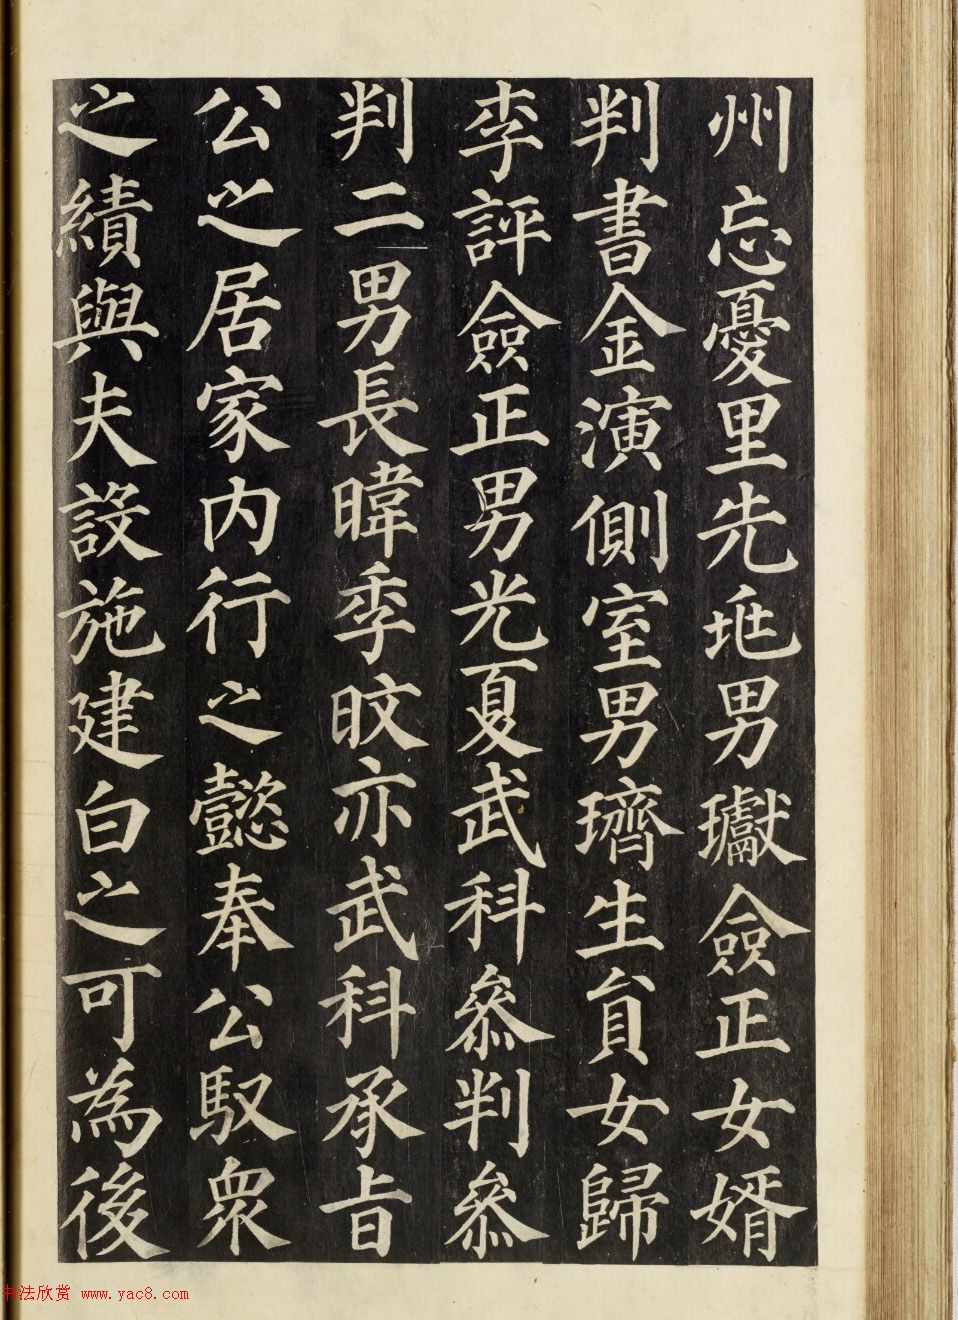 州忘憂里先逝男瓛僉正女婿
判書金演側室男璾生員女歸
李評僉正男光夏武科叅判叅
判二男長暐季旼亦武科承旨
公之居家內行之懿奉公馭衆
之績與夫設施建白之可為後
书法欣赏 www.yac8.com